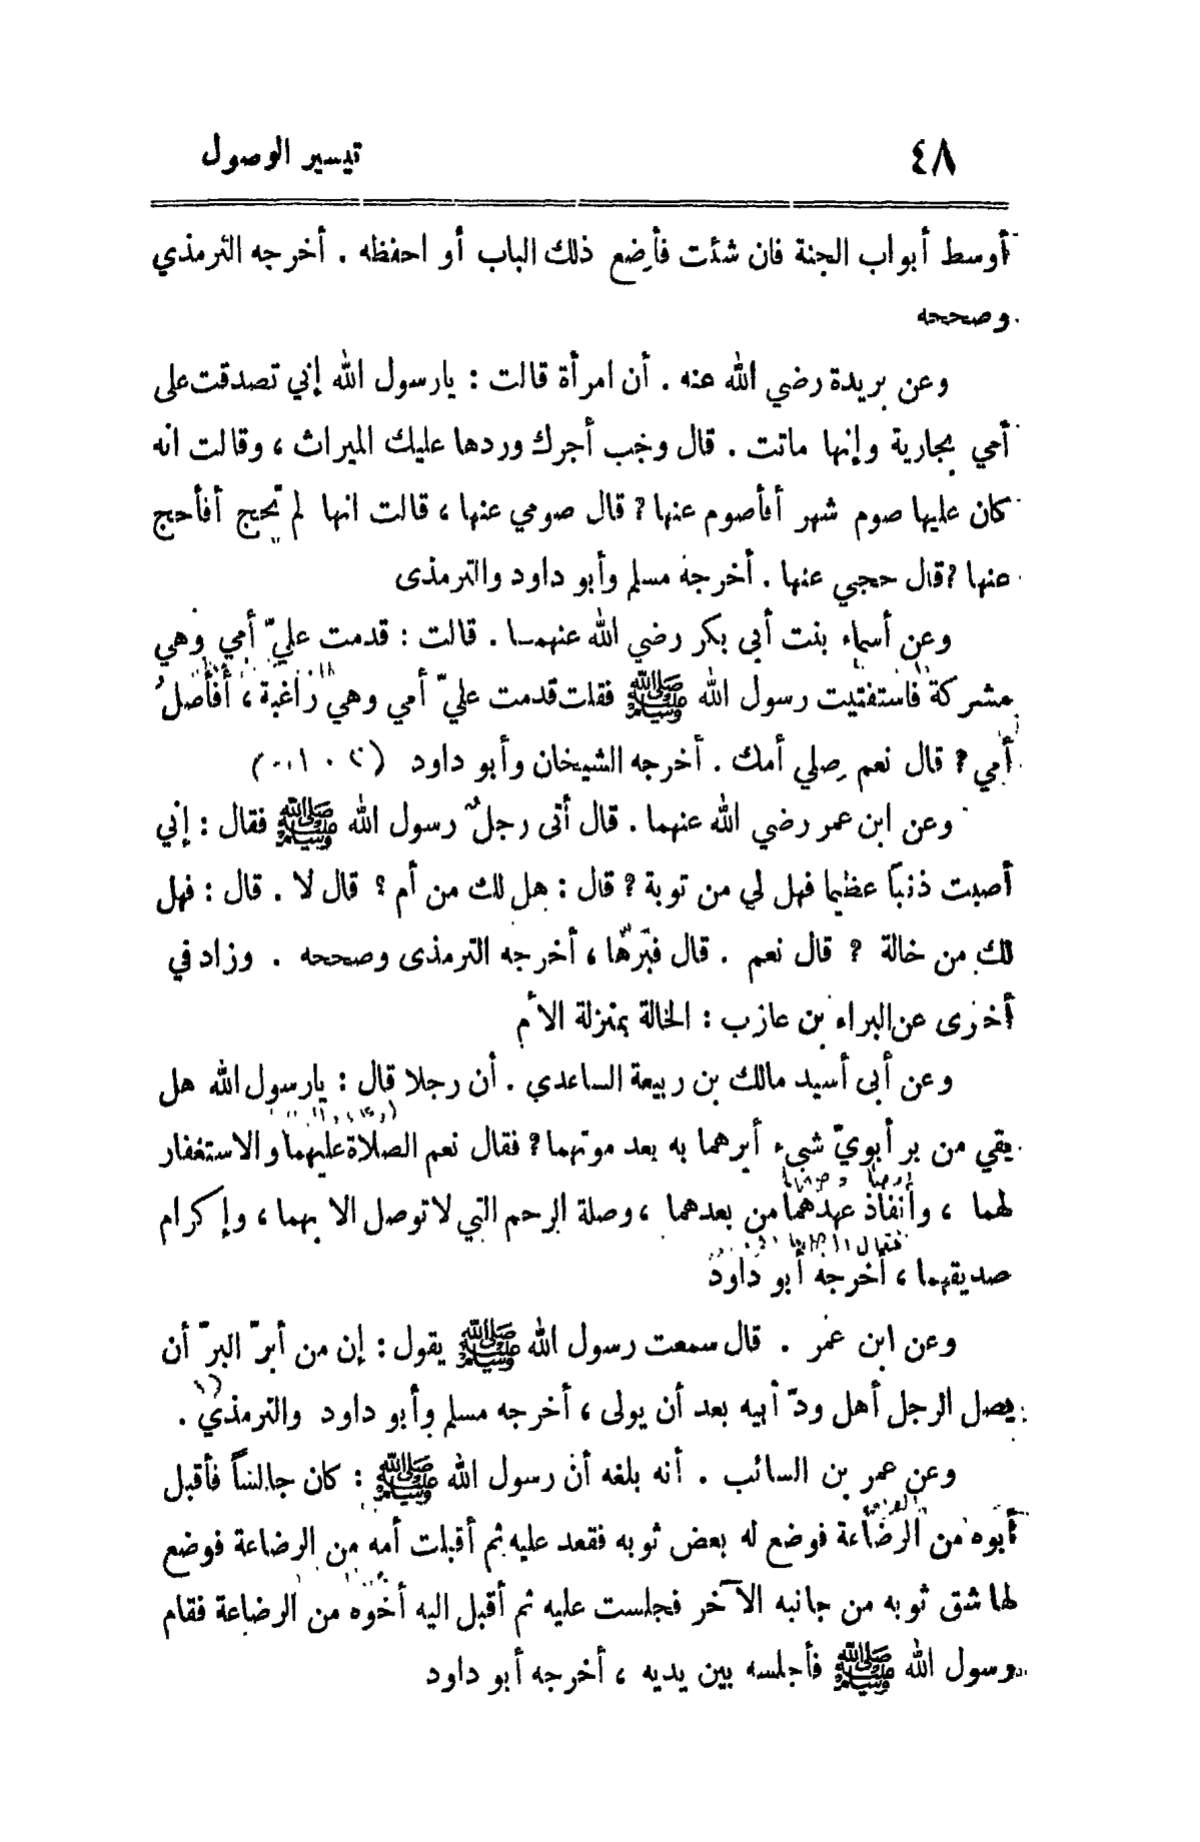 ٤٨ تيسير الوصول
أوسط أبواب الجنة فان شئت فأضع ذلك الباب أو احفظه . أخرجه الترمذي
وصححه
وعن بريدة رضي الله عنه . أن امرأة قالت : يارسول الله إني تصدقت على
أمي بجارية وإنها ماتت . قال وجب أجرك وردها عليك الميراث ، وقالت انه
كان عليها صوم شهر أفأصوم عنها ? قال صومي عنها ، قالت انها لم تحج أفأحج
عنها ? قال حجي عنها . أخرجه مسلم وأبو داود والترمذى
وعن أسماء بنت أبى بكر رضي الله عنهما . قالت : قدمت عليّ أمي وهي
مشركة فاستفتيت رسول الله ﷺ فقلت قدمت عليّ أمي وهي راغبة ، أفأصلُ
أمي ? قال نعم صِلي أمك . أخرجه الشيخان وأبو داود
وعن ابن عمر رضي الله عنهما . قال أتى رجلٌ رسول الله ﷺ فقال : إني
أصبت ذنباً عظيما فهل لي من توبة ? قال : هل لك من أم ؟ قال لا . قال : فهل
لك من خالة ? قال نعم . قال فبَرَّها ، أخرجه الترمذى وصححه . وزاد في
أخرى عن البراء بن عازب : الخالة بمنزلة الأم
وعن أبى أسيد مالك بن ربيعة الساعدي . أن رجلا قال : يارسول الله هل
بقي من بر أبويّ شىء أبرهما به بعد موتهما ? فقال نعم الصلاة عليهما والاستغفار
لهما ، وانفاذ عهدهما من بعدهما ، وصلة الرحم التي لا توصل الا بهما ، وإكرام
صديقهما ، أخرجه أبو داود
وعن ابن عمر . قال سمعت رسول الله ﷺ يقول : إن من أبرّ البرّ أن
يصل الرجل أهل ودّ أبيه بعد أن يولى ، أخرجه مسلم وأبو داود والترمذي .
وعن عمر بن السائب . أنه بلغه أن رسول الله ﷺ : كان جالساً فأقبل
أبوه من الرضاعة فوضع له بعض ثوبه فقعد عليه ثم أقبلت أمه من الرضاعة فوضع
لها شق ثوبه من جانبه الآخر فجلست عليه ثم أقبل اليه أخوه من الرضاعة فقام
رسول الله ﷺ فأجلسه بين يديه ، أخرجه أبو داود